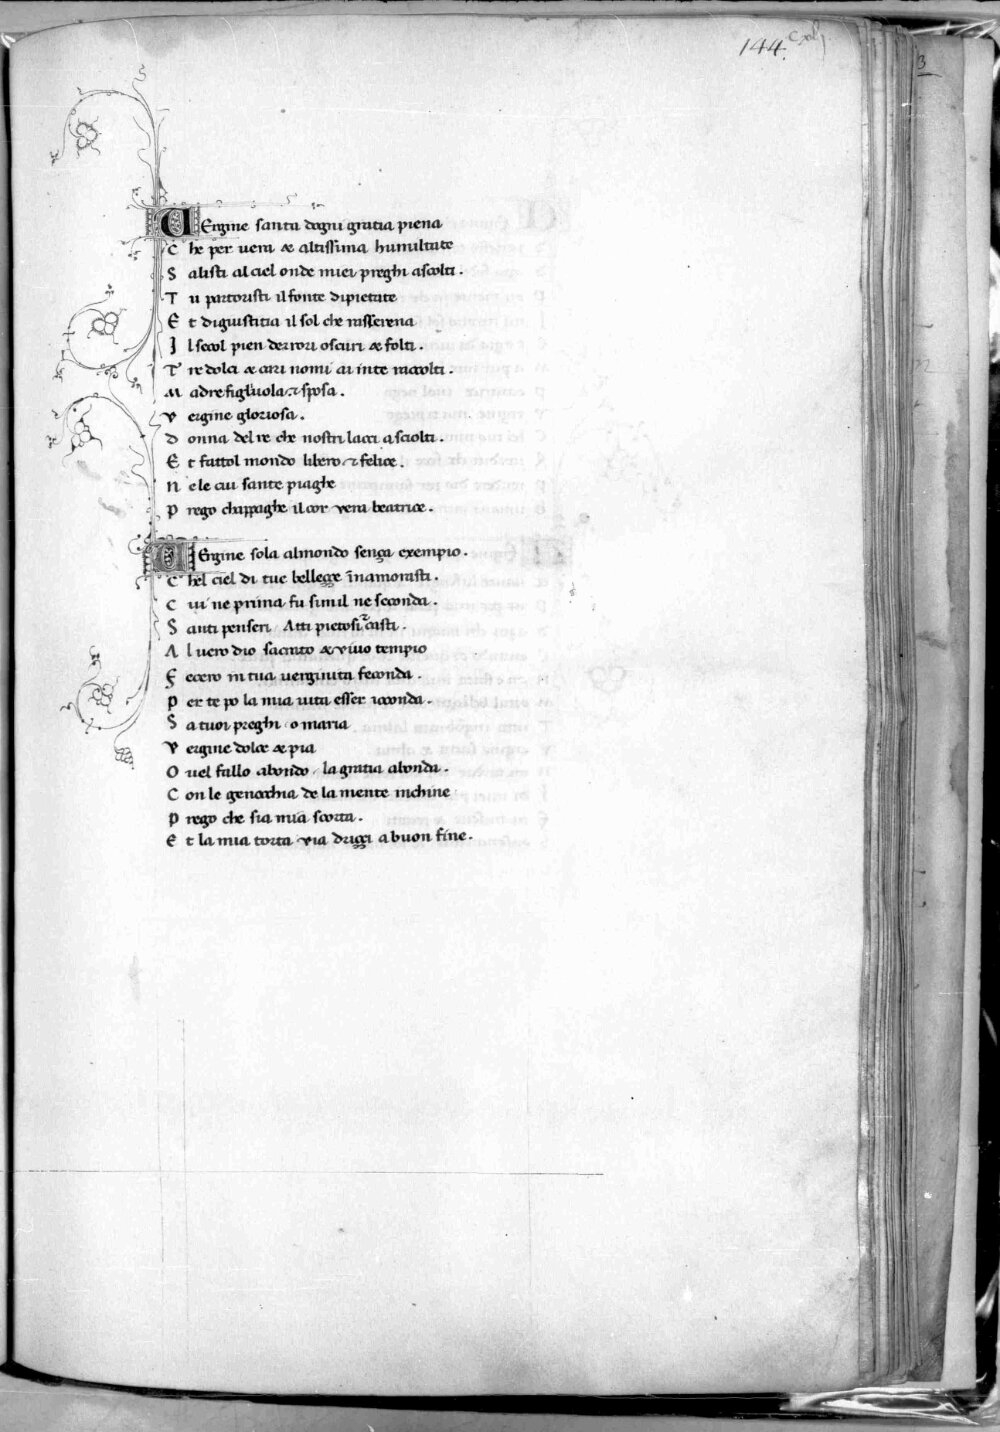 144. Cxlj.
3
VErgine santa dogni gratia piena
C he per uera æ altissima humiltate
S alisti al ciel onde miei preghi ascolti.
T u partoristi il fonte dipietate
E t digiustitia il sol che rasserena
I l secol pien derrori oscuri æ folti.
T re dolci æ cari nomi ai inte raccolti.
M adre figliuola ⁊ sposa.
V ergine gloriosa.
D onna del re che nostri lacci a sciolti.
E t fattol mondo libero ⁊ felice.
N ele cui sante piaghe
P rego chappaghe il cor vera beatrice.
VErgine sola almondo senza exempio.
C hel ciel di tue bellezze īnamorasti.
C ui ne prima fu simil ne seconda.
S anti penseri Atti pietosi ⁊ casti.
A l uero dio sacrato æ viuo tempio
F ecero in tua uerginita feconda.
P er te po la mia uita esser ioconda.
S a tuoi preghi o maria
V ergine dolce æ pia
O uel fallo abondo la gratia abonda.
C on le genocchia de la mente inchine
P rego che sia mia scorta.
E t la mia torta via drizzi a buon fine.